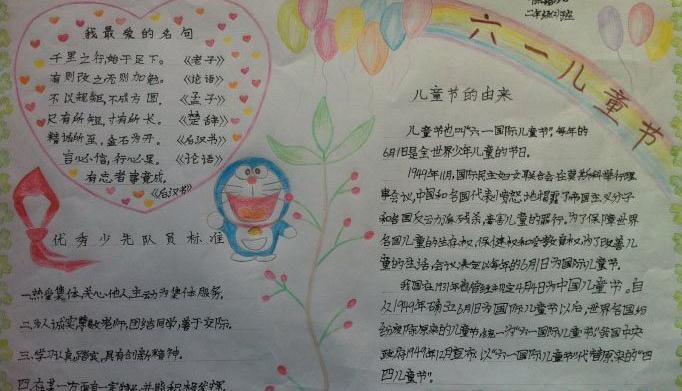 我最爱的名句
千里之行,始于足下。《老子》
有则改之,无则加勉。《论语》
不以规矩,不成方圆。《孟子》
尺有所短,寸有所长。《楚辞》
精诚所至,金石为开。《后汉书》
言必信,行必果。《论语》
有志者事竟成。
《后汉书》
优秀少先队员标准
一.热爱集体,关心他人,主动为集体服务。
二.为人诚实,尊敬老师,团结同学,善于交际。
三.学习认真,踏实,具有创新精神。
四.在某一方面有一定特长,并能积极发挥
二年级 班
六一儿童节
儿童节的由来
儿童节也叫"六一国际儿童节",每年的
6月1日是全世界少年儿童的节日。
1949年11月,国际民主妇女联合会在莫斯科举行理
事会议,中国和各国代表愤怒地揭露了帝国主义分子
和各国反动派残杀、毒害儿童的罪行。为了保障世界
各国儿童的生存权、保健权和受教育权,为了改善儿
童的生活,会议决定以每年的6月1日为国际儿童节。
我国在1931年曾 规定4月4日为中国儿童节。自
从1949年确立6月1日为国际儿童节以后,世界各国纷
纷废除原来的儿童节,统一为"六一国际儿童节"我国中央
政府1949年12月宣布,以"六一国际儿童节"代替原来的"四
四儿童节"。